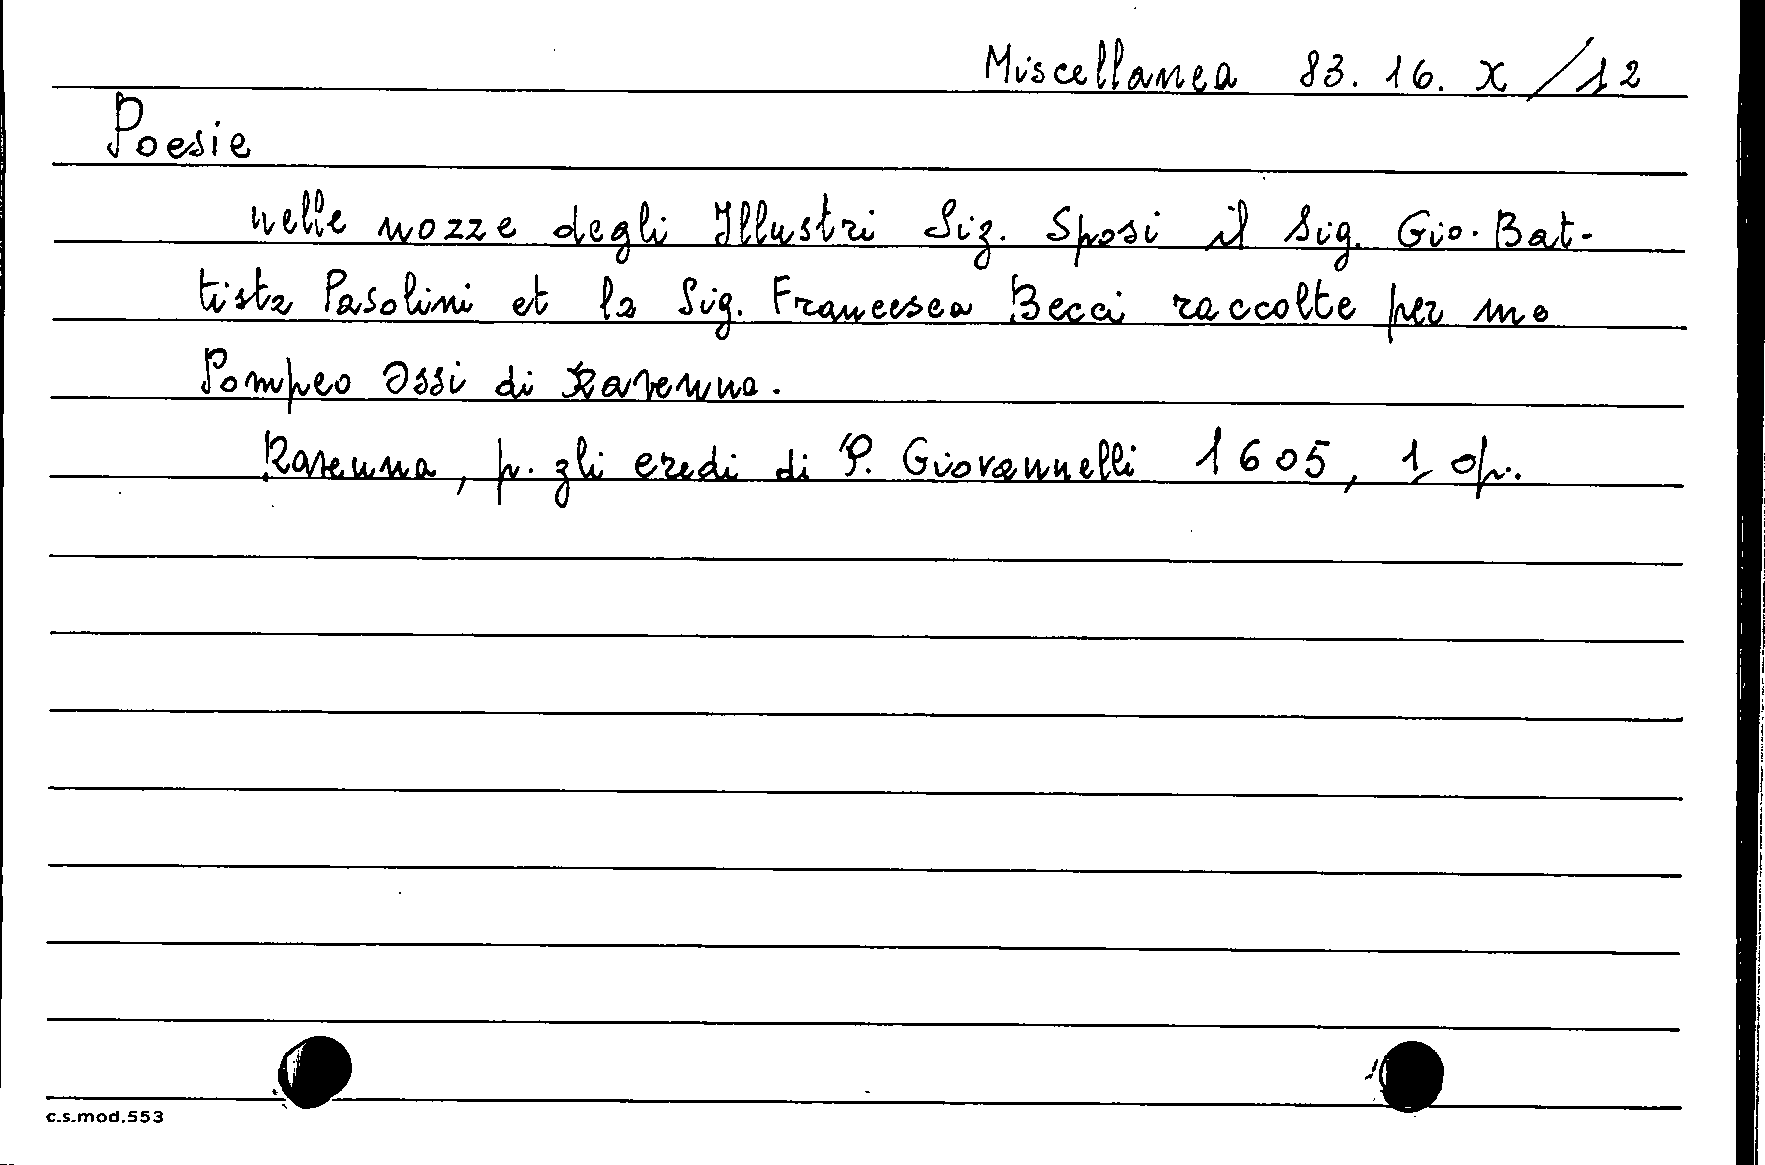 Miscellanea 83. 16. X /12
Poesie
nelle nozze degli Illustri Sig. Sposi il Sig. Gio. Bat-
tista Pasolini et la Sig. Francesca Becci raccolte per me
Pompeo Ossi di Ravenna.
Ravenna, p. gli eredi di P. Giovannelli 1605, 1 op.
c.s.mod.553